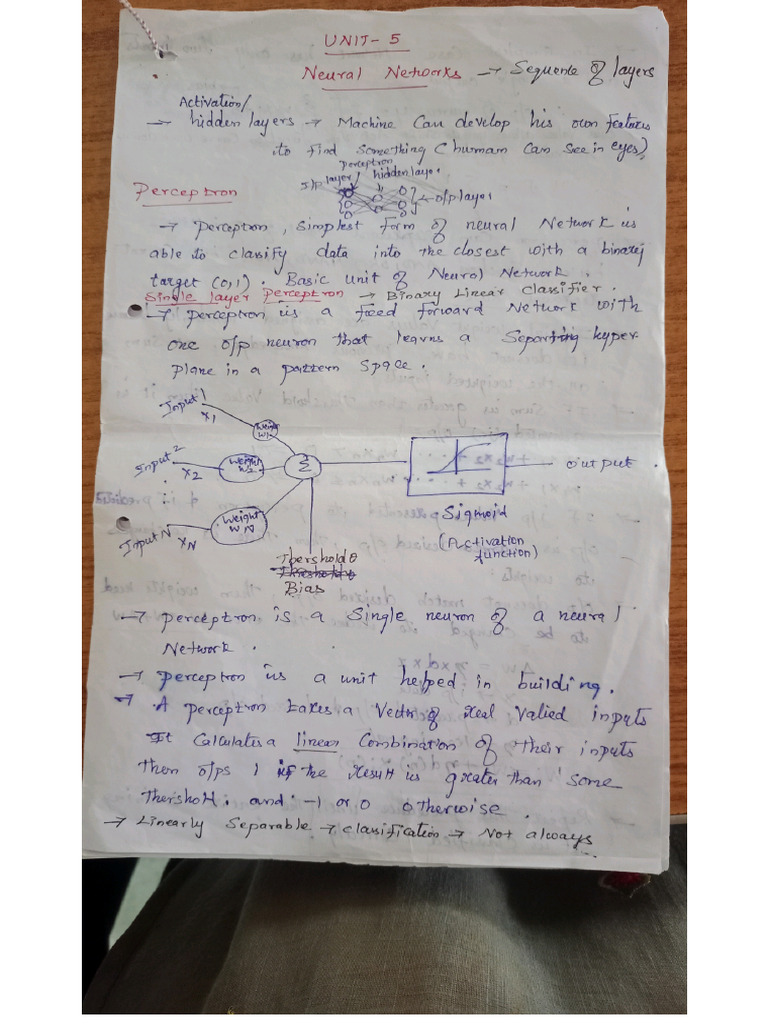 UNIT- 5
Neural Networks → Sequence of layers
Activation/
→ hidden layers → Machine Can develop his own features
to find something (human Can see in eyes),
perceptron
I/P layer/ hidden layer
← o/p layer
Perceptron
→ perceptron, simplest form of neural Network is
able to classify data into the closest with a binary
target (0,1). Basic unit of Neural Network.
Single layer Perceptron → Binary Linear classifier.
→ perceptron is a feed forward Network with
one o/p neuron that learns a Separting hyper
Plane in a pattern Space.
Input 1
X1
Weight
W1
Input 2
X2
Weight
W2
Σ
output
Input N
XN
Weight
WN
Sigmoid
(Activation
function)
Thershold θ
Bias
→ perceptron is a Single neuron of a neural
Network.
→ perceptron is a unit helped in building.
→ A perceptron takes a Vector of real Valied inputs
It Calculates a linear Combination of their inputs
then o/ps 1 if the result is greater than some
thershold. and -1 or 0 otherwise.
→ Linearly Separable → classification → Not always